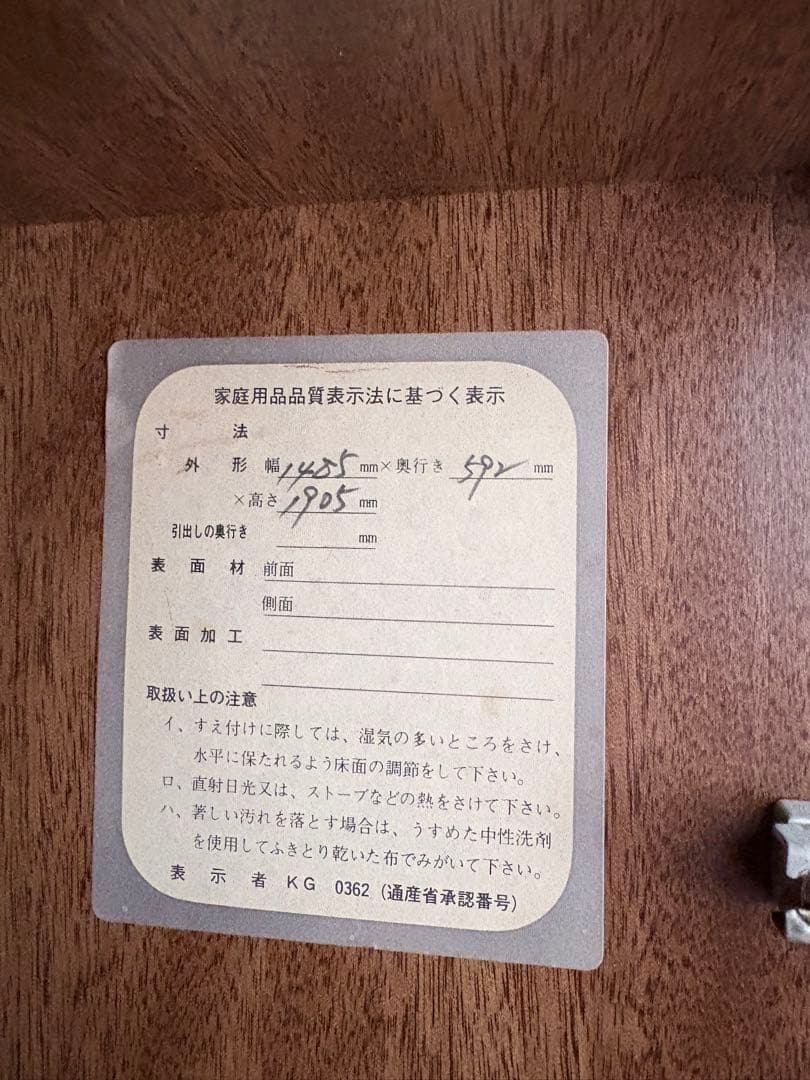 家庭用品品質表示法に基づく表示
寸法
外形 幅 1485 mm×奥行き 592 mm
×高さ 1905 mm
引出しの奥行き mm
表面材 前面
側面
表面加工
取扱い上の注意
イ、すえ付けに際しては、湿気の多いところをさけ、
水平に保たれるよう床面の調節をして下さい。
ロ、直射日光又は、ストーブなどの熱をさけて下さい。
ハ、著しい汚れを落とす場合は、うすめた中性洗剤
を使用してふきとり乾いた布でみがいて下さい。
表示者 KG 0362(通産省承認番号)